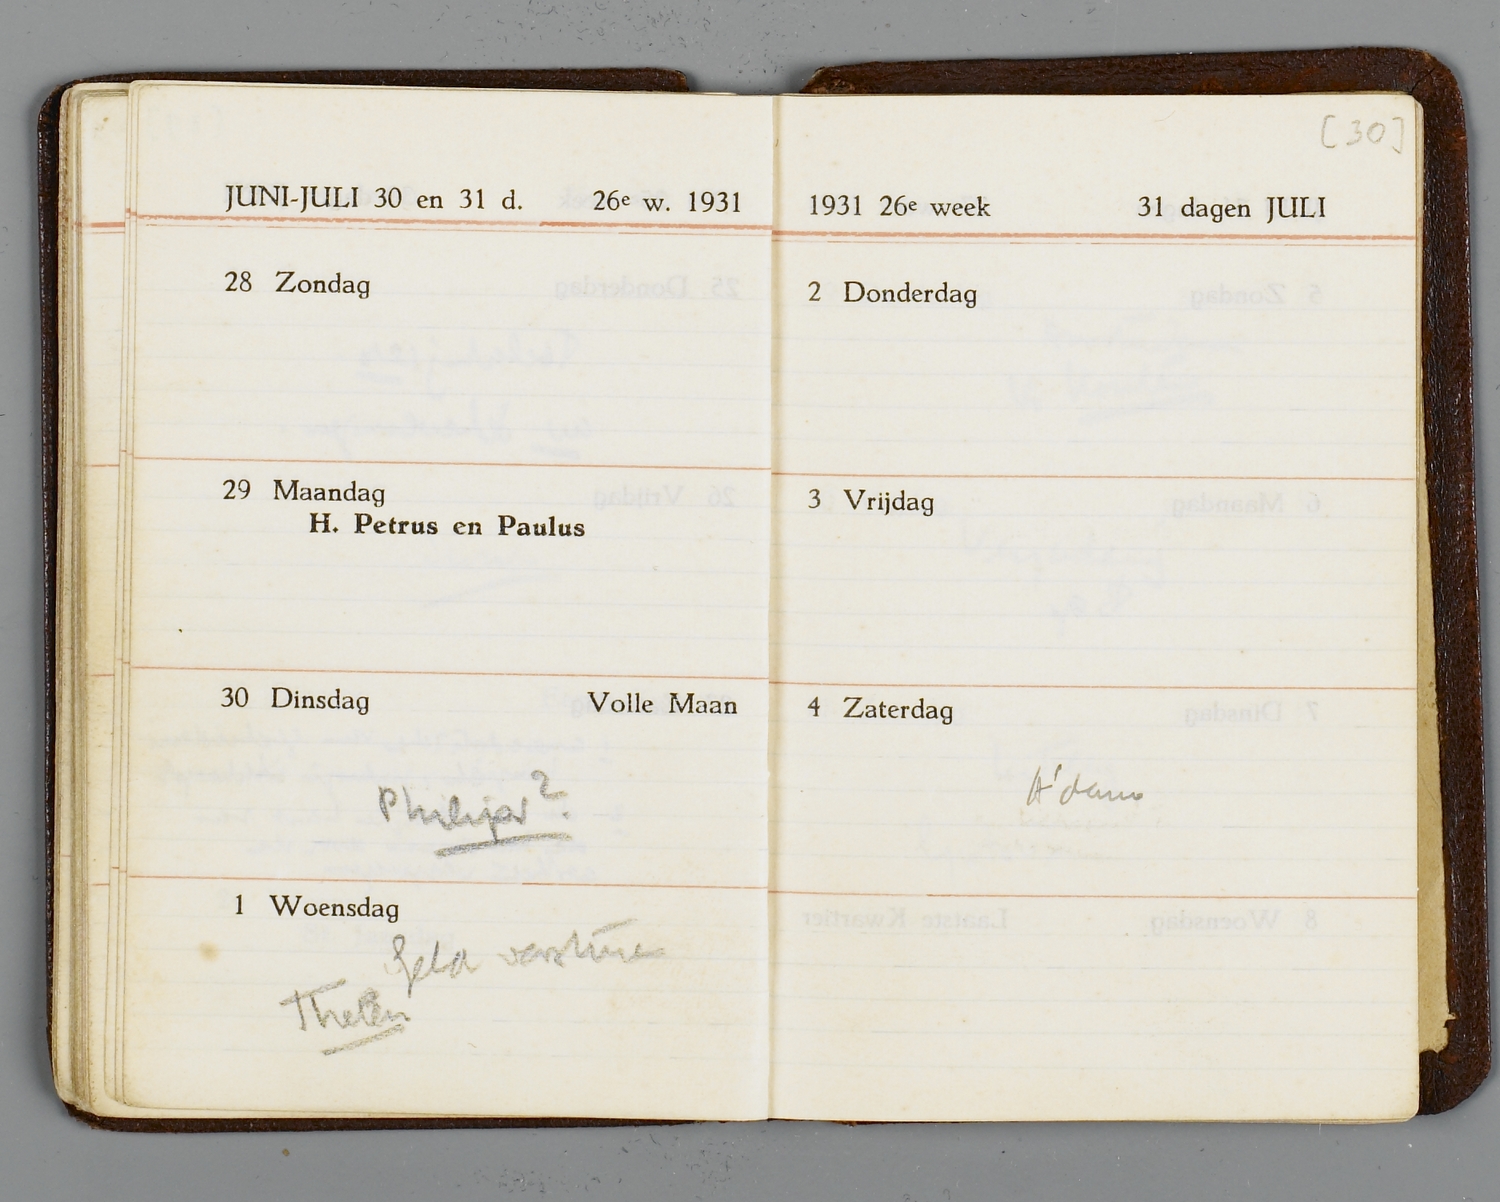 JUNI-JULI 30 en 31 d. 26e w. 1931
28 Zondag
29 Maandag
H. Petrus en Paulus
30 Dinsdag Volle Maan
1 Woensdag
Geld
Thelen
[30]
1931 26e week 31 dagen JULI
2 Donderdag
3 Vrijdag
4 Zaterdag
A'dam